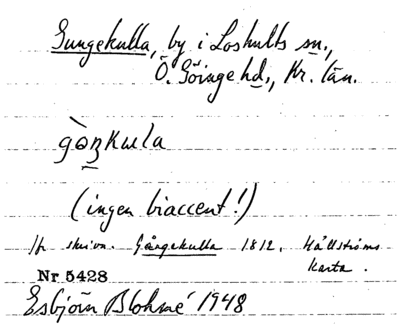 Gungekulla, by i Loshults sn.,
Ö. Göinge hd., Kr. län.
gòŋkula
(ingen biaccent!)
Jfr skrivn. Gångekulla 1812. Hällströms
karta.
Nr 5428
Esbjörn Blohmé 1948